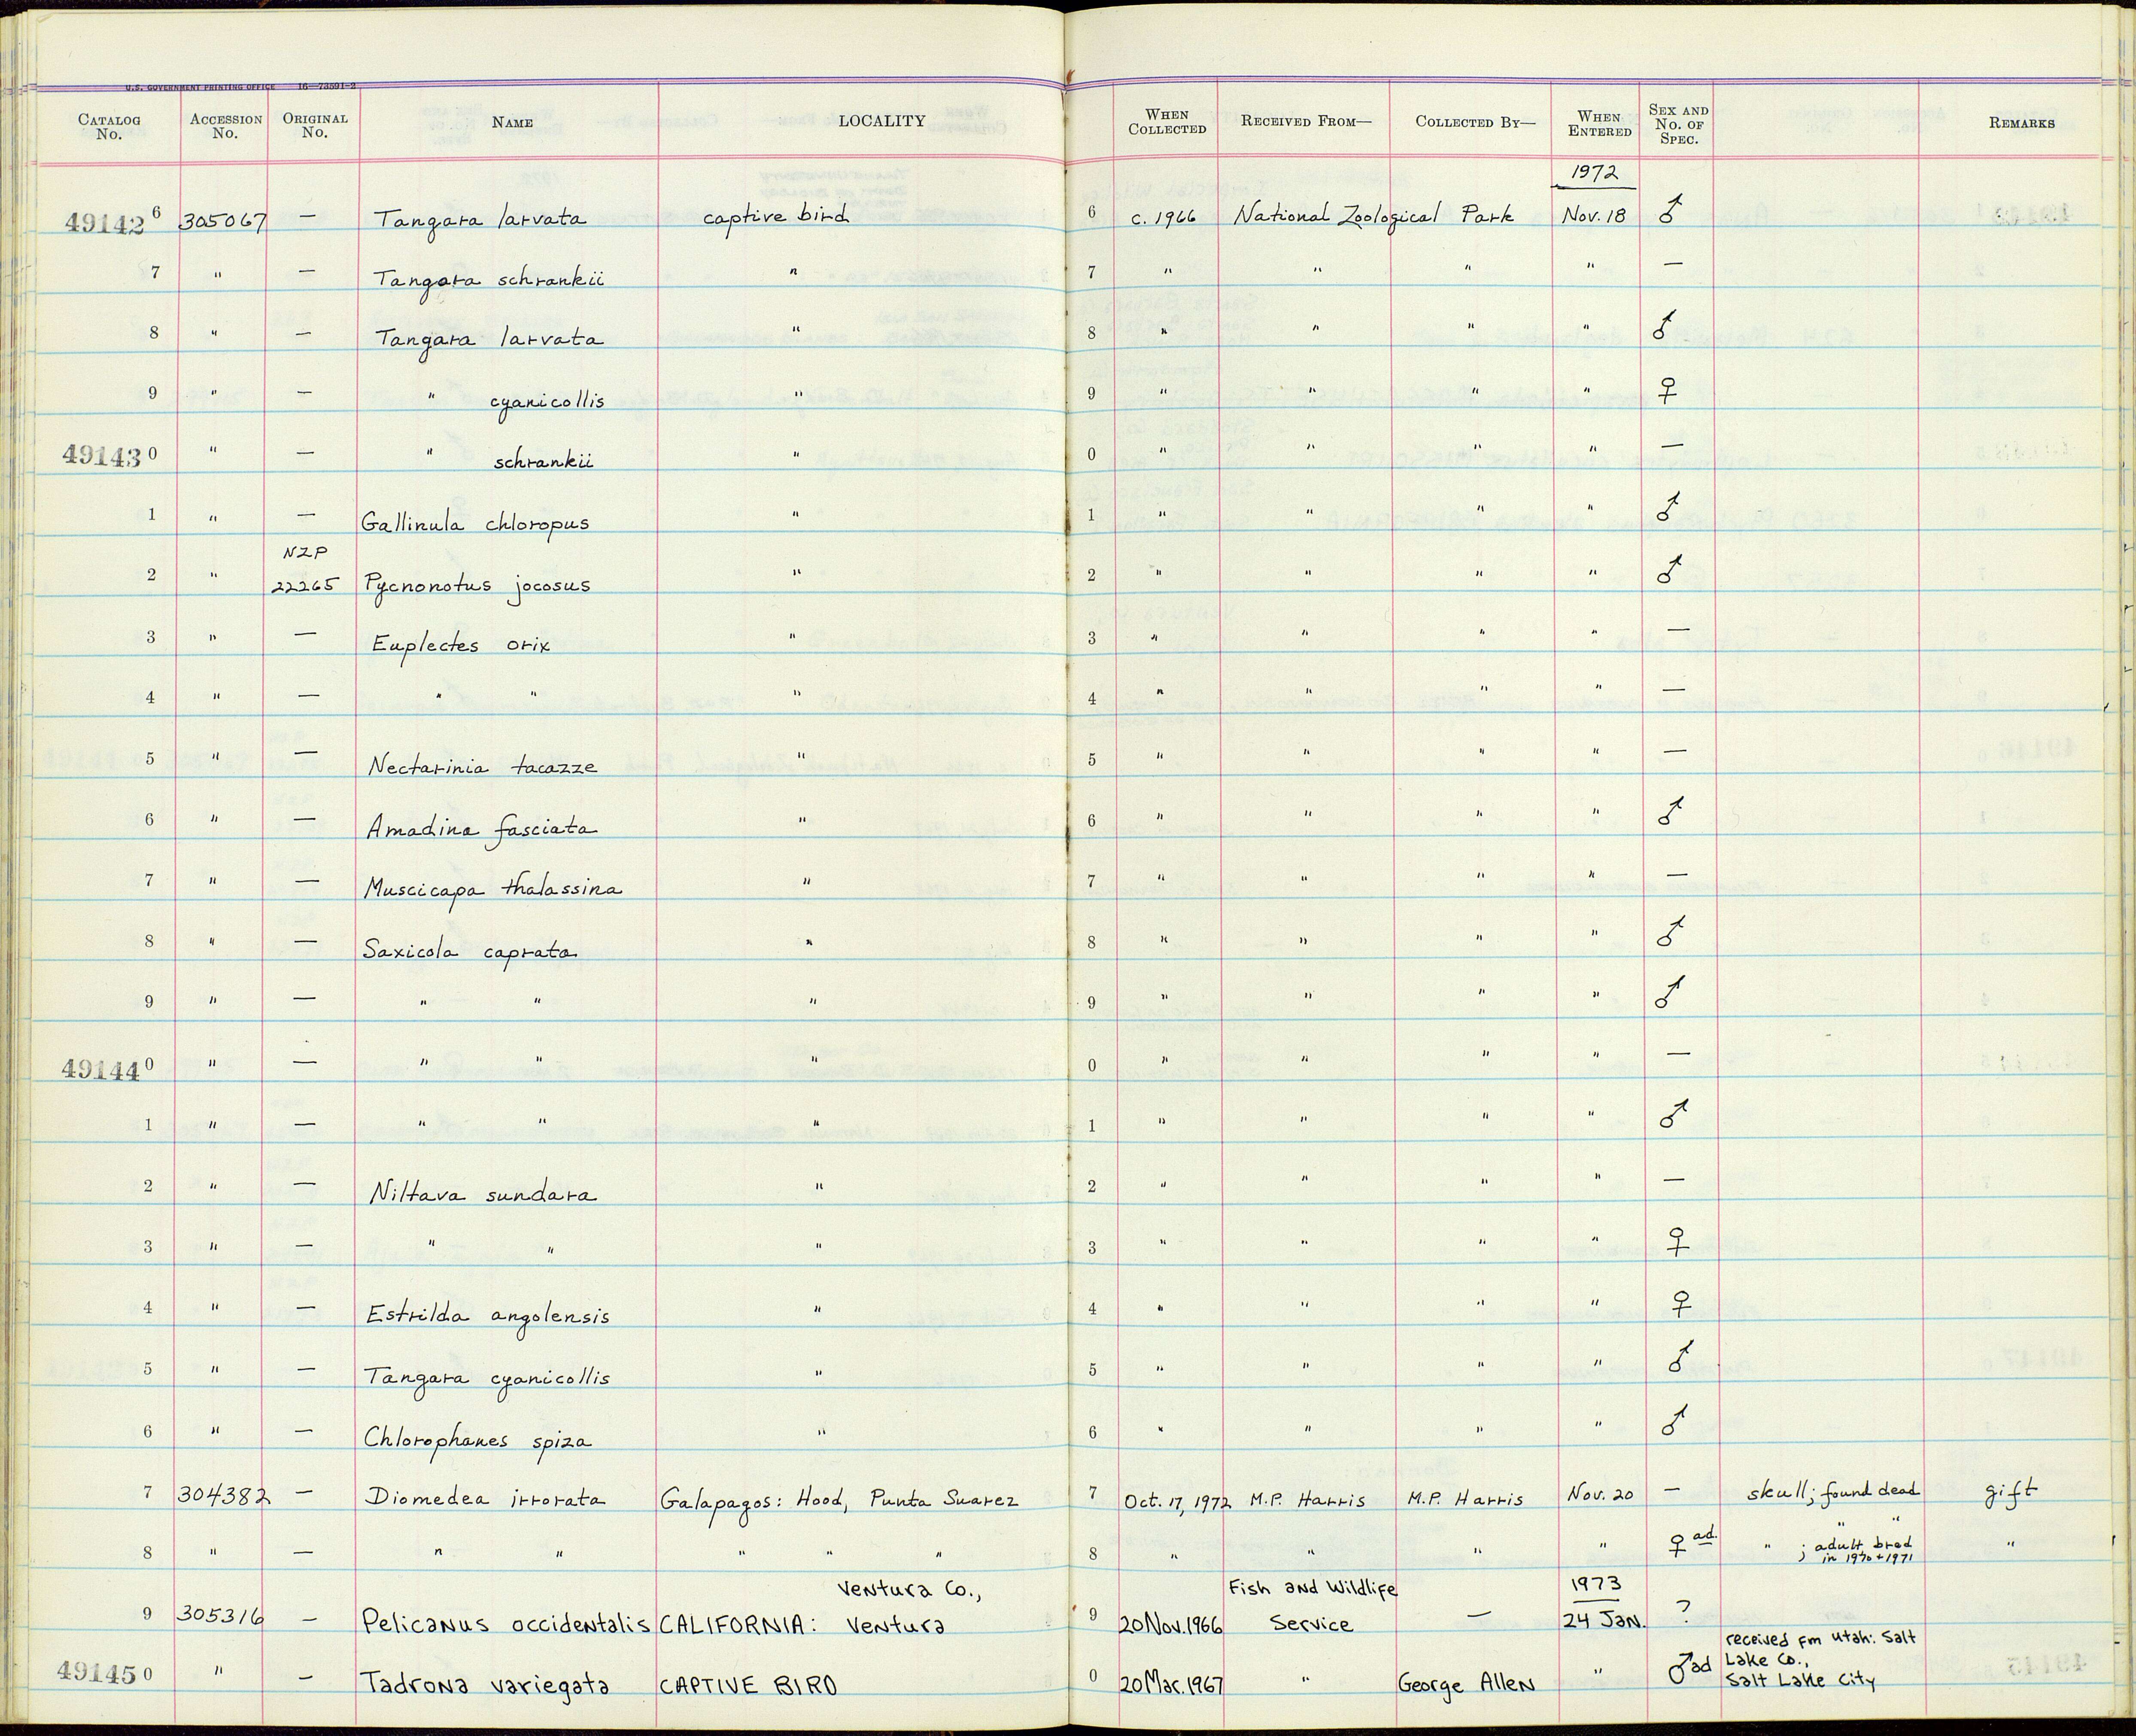 U.S. GOVERNMENT PRINTING OFFICE 16—73591-2
CATALOG No. ACCESSION No. ORIGINAL No. NAME LOCALITY WHEN COLLECTED RECEIVED FROM— COLLECTED BY— WHEN ENTERED SEX AND No. OF SPEC. REMARKS
1972
49142 6 305067 — Tangara larvata captive bird 6 c. 1966 National Zoological Park Nov. 18 ♂
7 " — Tangara schrankii " 7 " " " " —
8 " — Tangara larvata " 8 " " " " ♂
9 " — " cyanicollis " 9 " " " " ♀
49143 0 " — " schrankii " 0 " " " " —
1 " — Gallinula chloropus " 1 " " " " ♂
NZP
2 " 22265 Pycnonotus jocosus " 2 " " " " ♂
3 " — Euplectes orix " 3 " " " " —
4 " — " " " 4 " " " " —
5 " — Nectarinia tacazze " 5 " " " " —
6 " — Amadina fasciata " 6 " " " " ♂
7 " — Muscicapa thalassina " 7 " " " " —
8 " — Saxicola caprata " 8 " " " " ♂
9 " — " " " 9 " " " " ♂
49144 0 " — " " " 0 " " " " —
1 " — " " " 1 " " " " ♂
2 " — Niltava sundara " 2 " " " " —
3 " — " " " 3 " " " " ♀
4 " — Estrilda angolensis " 4 " " " " ♀
5 " — Tangara cyanicollis " 5 " " " " ♂
6 " — Chlorophanes spiza " 6 " " " " ♂
7 304382 — Diomedea irrorata Galapagos: Hood, Punta Suarez 7 Oct. 17, 1972 M.P. Harris M.P. Harris Nov. 20 — skull; found dead gift
" "
8 " — " " " " " 8 " " " " ♀ ad. " ; adult bred "
in 1970 + 1971
Ventura Co., Fish and Wildlife 1973
9 305316 — Pelicanus occidentalis CALIFORNIA: Ventura 9 20 Nov. 1966 Service — 24 Jan. ?
received fm Utah: Salt
Lake Co.,
49145 0 " — Tadrona variegata CAPTIVE BIRD 0 20 Mar. 1967 " George Allen " ♂ ad Salt Lake City